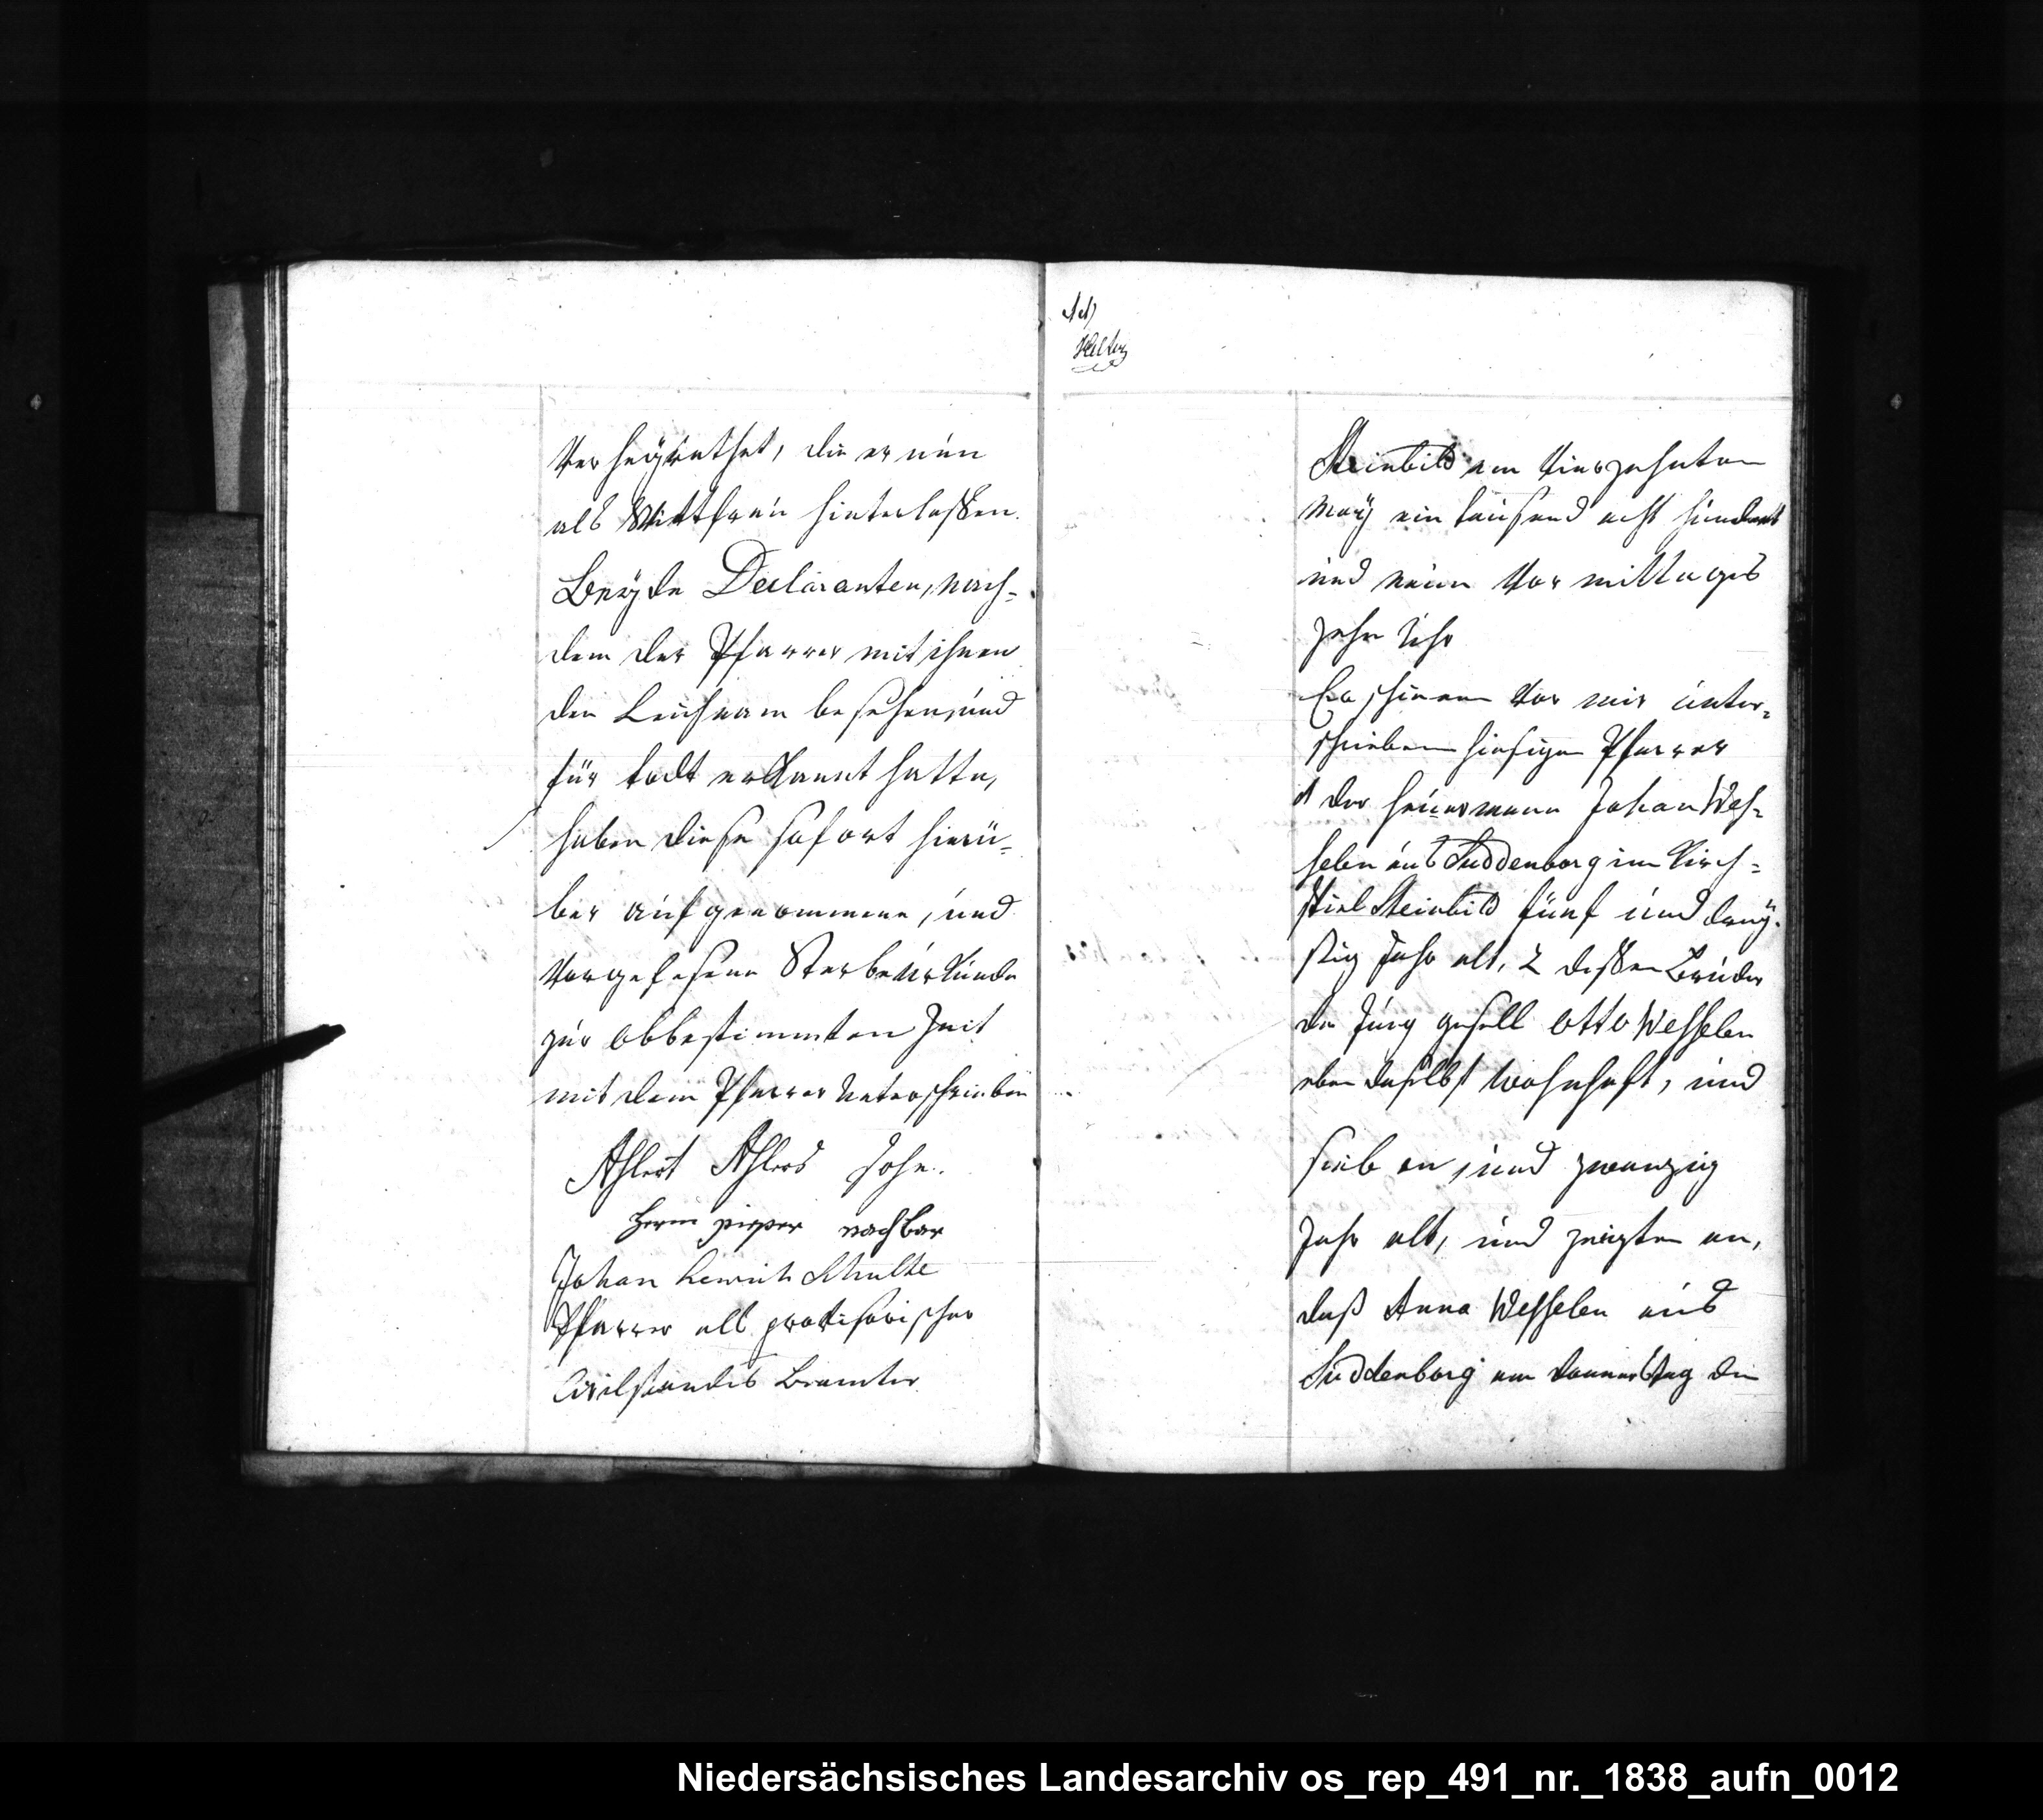 Verheÿrathet, die er nun
als Wittfrau hinterlaßen.
Beÿde Declaranten, nach-
dem der Pfarrer mit ihnen
den Leichnam besehen, und
für todt erkannt hatte,
haben diese sofort hierü-
ber aufgenommene, und
Vorgelesene Sterbeurkunde
zur obbestimmten Zeit
mit dem Pfarrer Unterschrieben
Ahlert Ahlers Sohn.
Herm pieper nachbar
Johan Henrich Schulte
Pfarrer als provisorischer
Civilstandes Beamter
Steinbild am Vierzehnten
Maÿ ein tausend acht hundert
und neun Vormittages
zehn Uhr
Erschienen Vor mir unter-
schriebenen hiesigen Pfarrer
1 der Heuermann Johan Wes-
selen aus Suddenborg im Kirch-
spiel Steinbild fünf und dreÿ-
ßig Jahr alt, 2 deßen Bruder
der Jung gesell Otto Wesselen
eben daselbst wohnhaft, und
sieben und zwanzig
Jahr alt, und zeigten an,
daß Anna Wesselen aus
Suddenborg am Donnerstag den
Niedersächsisches Landesarchiv os_rep_491_nr._1838_aufn_0012